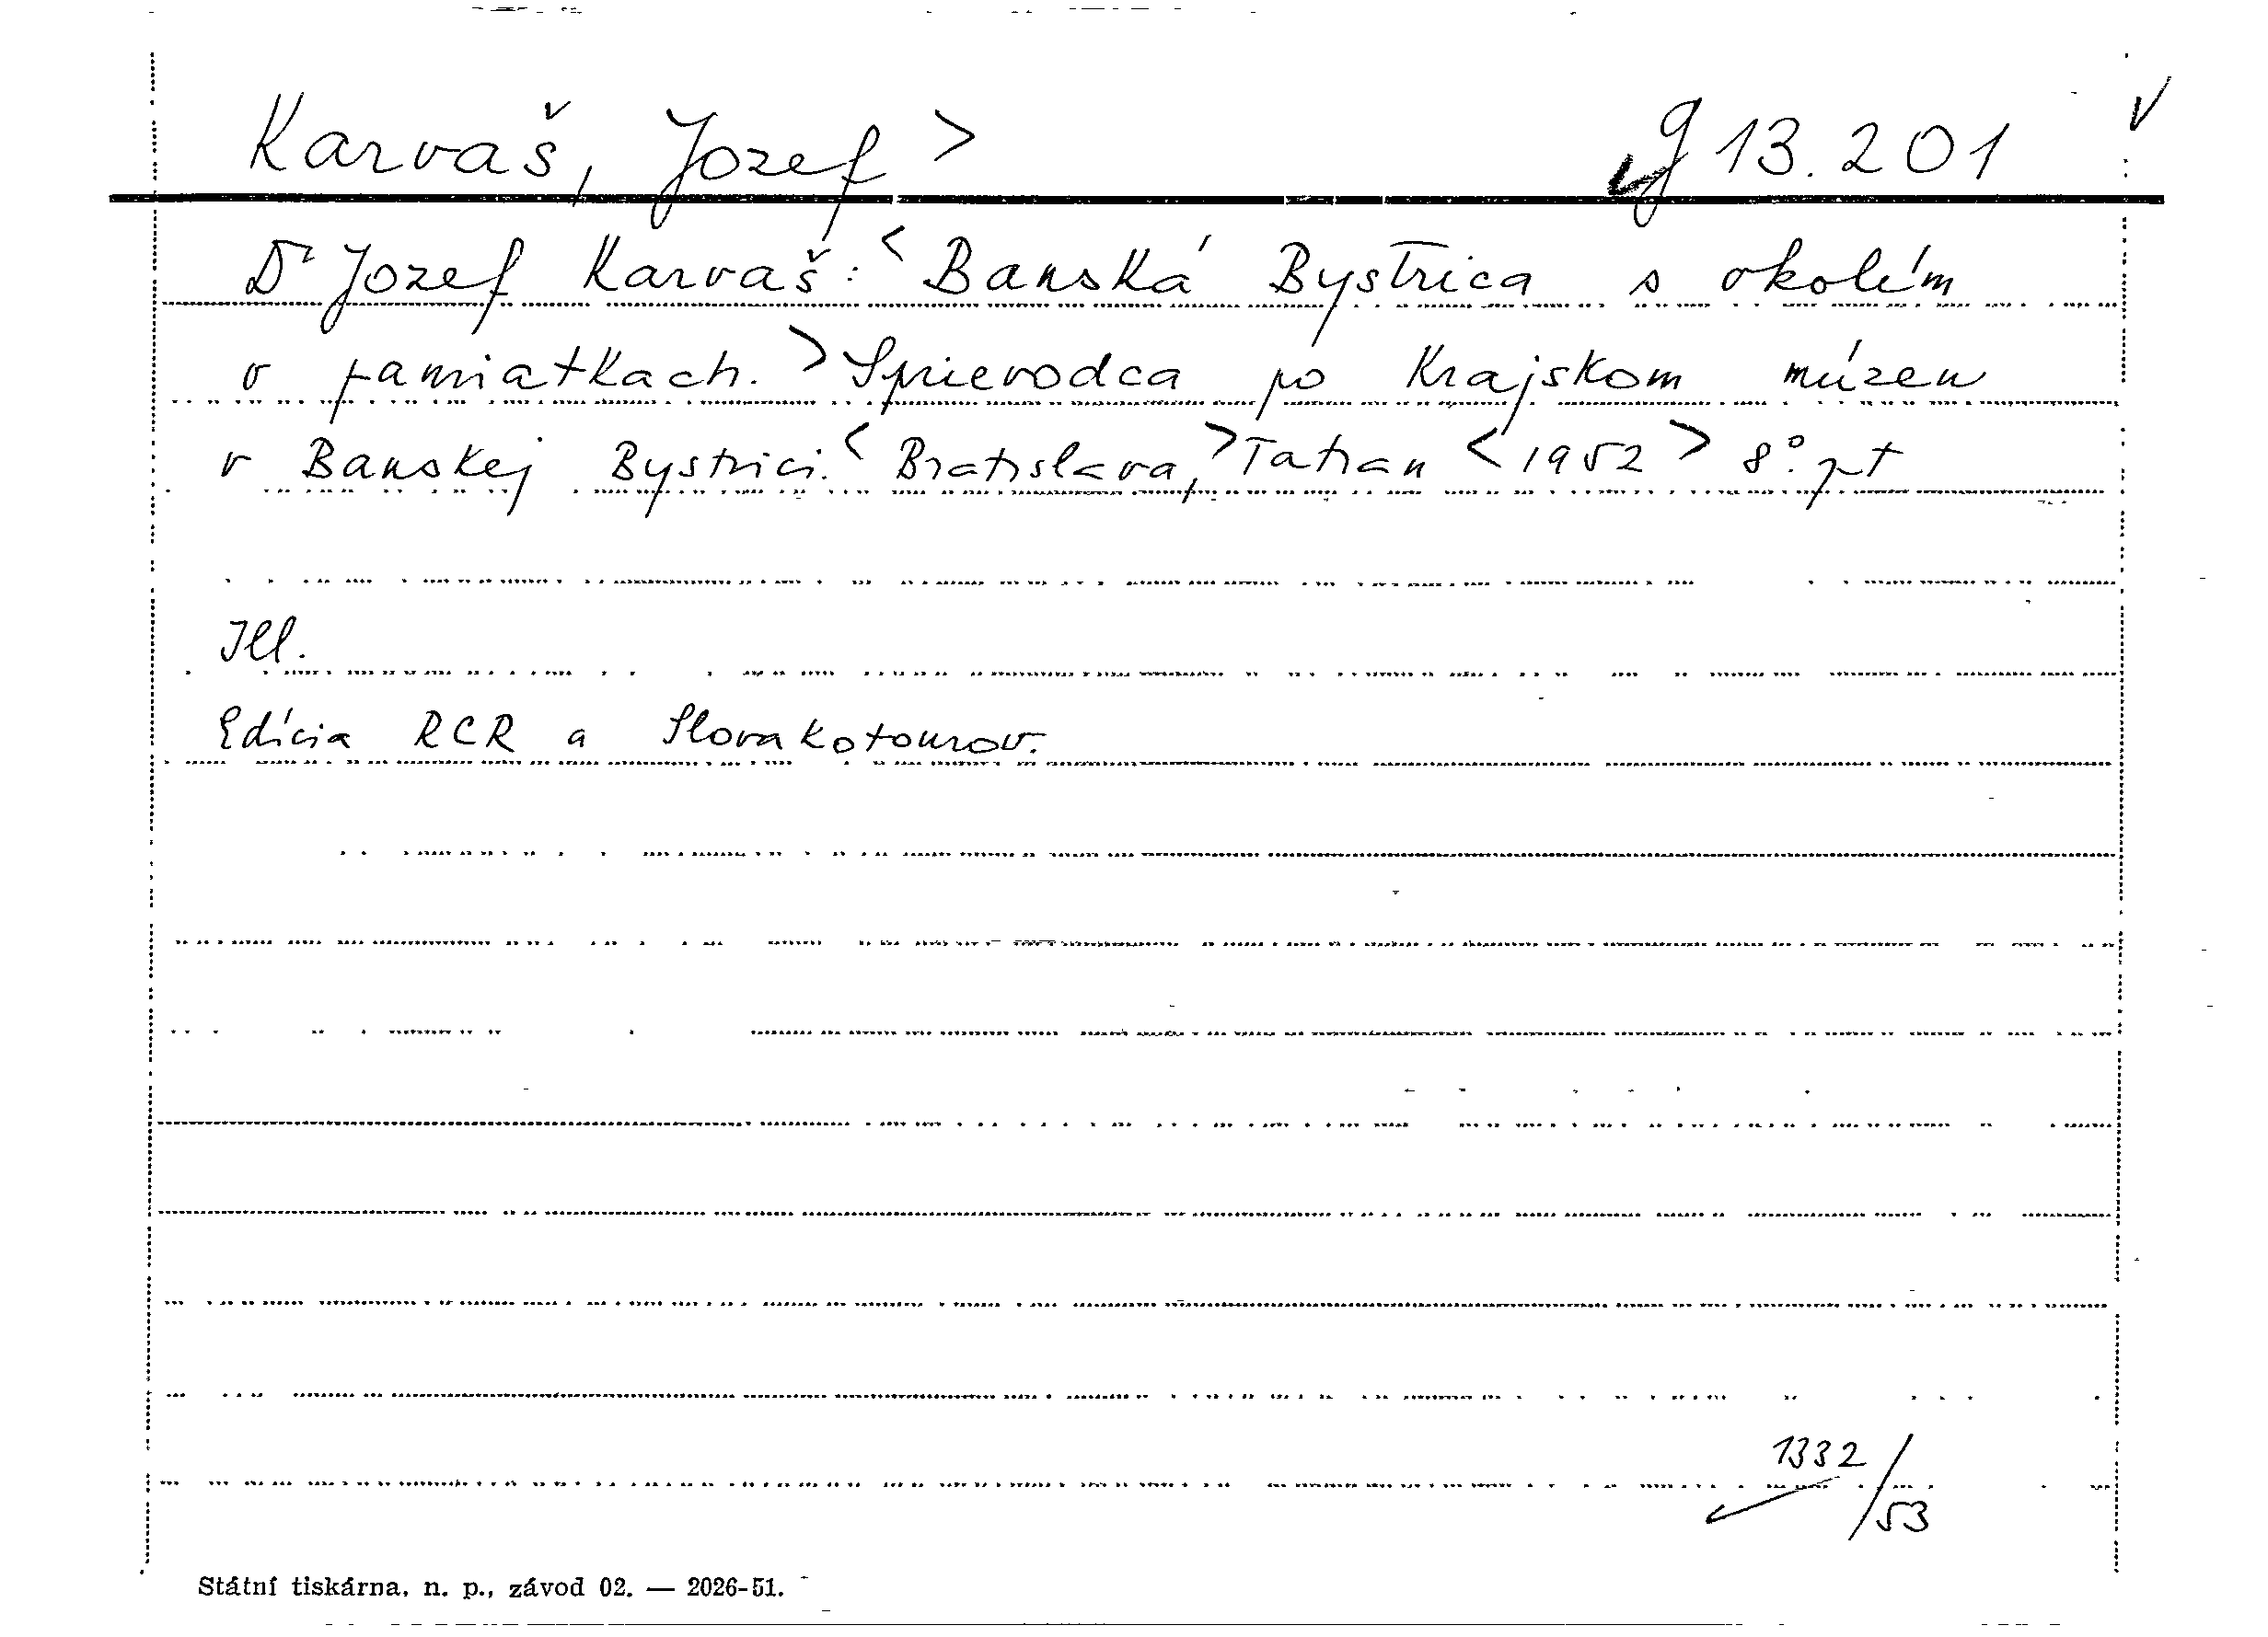 Karvaš, Jozef > g 13.201
Dr Jozef Karvaš: < Banská Bystrica s okolím
v pamiatkach. > Sprievodca po Krajskom múzeu
v Banskej Bystrici. < Bratislava, > Tatran < 1952 > 8° pt
Ill.
Edícia RCR a Slovakotourov.
1332/53
Státní tiskárna, n. p., závod 02. — 2026-51.